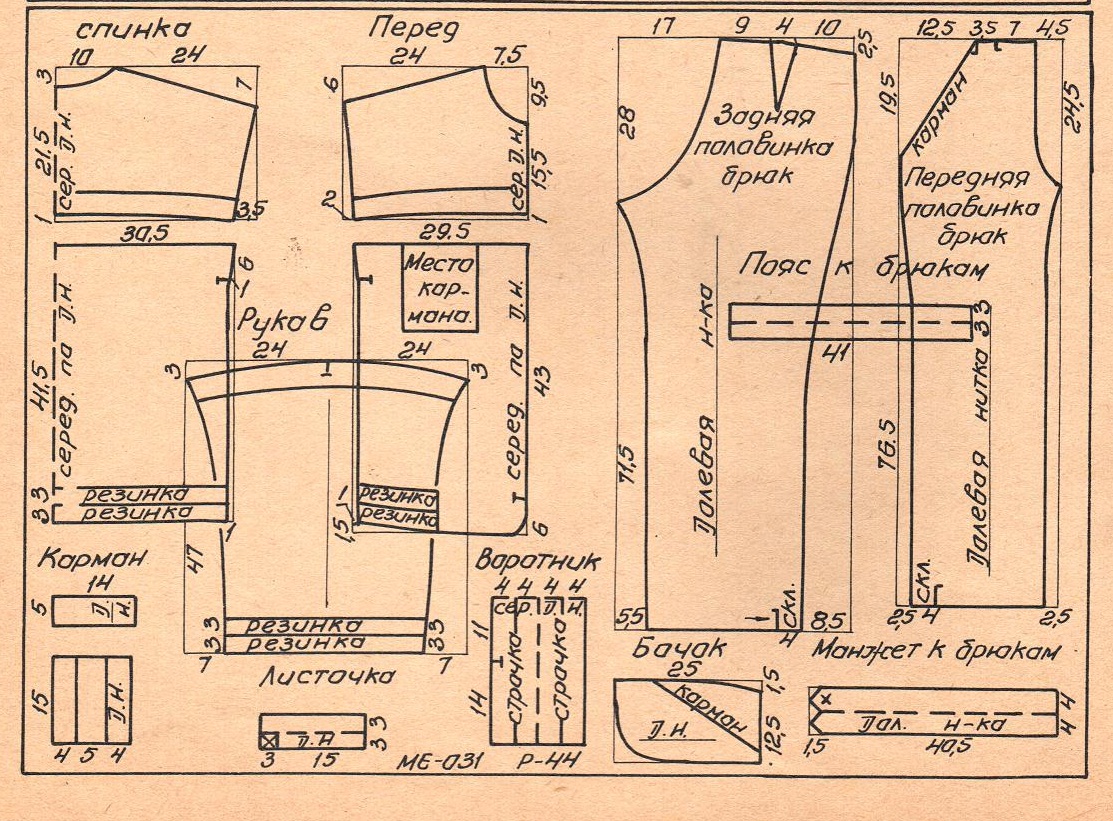 спинка
10
24
3
7
21.5
сер. д.н.
1
3,5
Перед
24
7,5
6
9,5
сер. д.н.
15,5
2
1
30,5
6
1
серед. па д.н.
41,5
3 3
резинка
резинка
1
29.5
Места
кар-
мана.
серед. па д.н.
43
1
резинка
резинка
1,5
6
Рукав
24
24
3
3
1
47
3 3
резинка
3 3
резинка
7
7
Карман
14
5
д.н.
15
д.н.
4 5 4
Листочка
3 3
д.н
3
15
Варатник
4 4 4 4
сер. д. н.
11
страчка
страчка
14
МЕ-031
Р-44
17
9
4
10
2,5
28
Задняя
палавинка
брюк
Далевая н-ка
71,5
5,5
скл.
4
8.5
12,5
3,5
7
4,5
19,5
карман
24,5
Передняя
палавинка
брюк
76.5
Далевая нитка
скл.
2,5
4
2,5
Пояс к брюкам
3 3
41
Бачак
25
1,5
карман
д.н.
12,5
Манжет к брюкам
х
4 4
Дал. н-ка
1,5
40,5